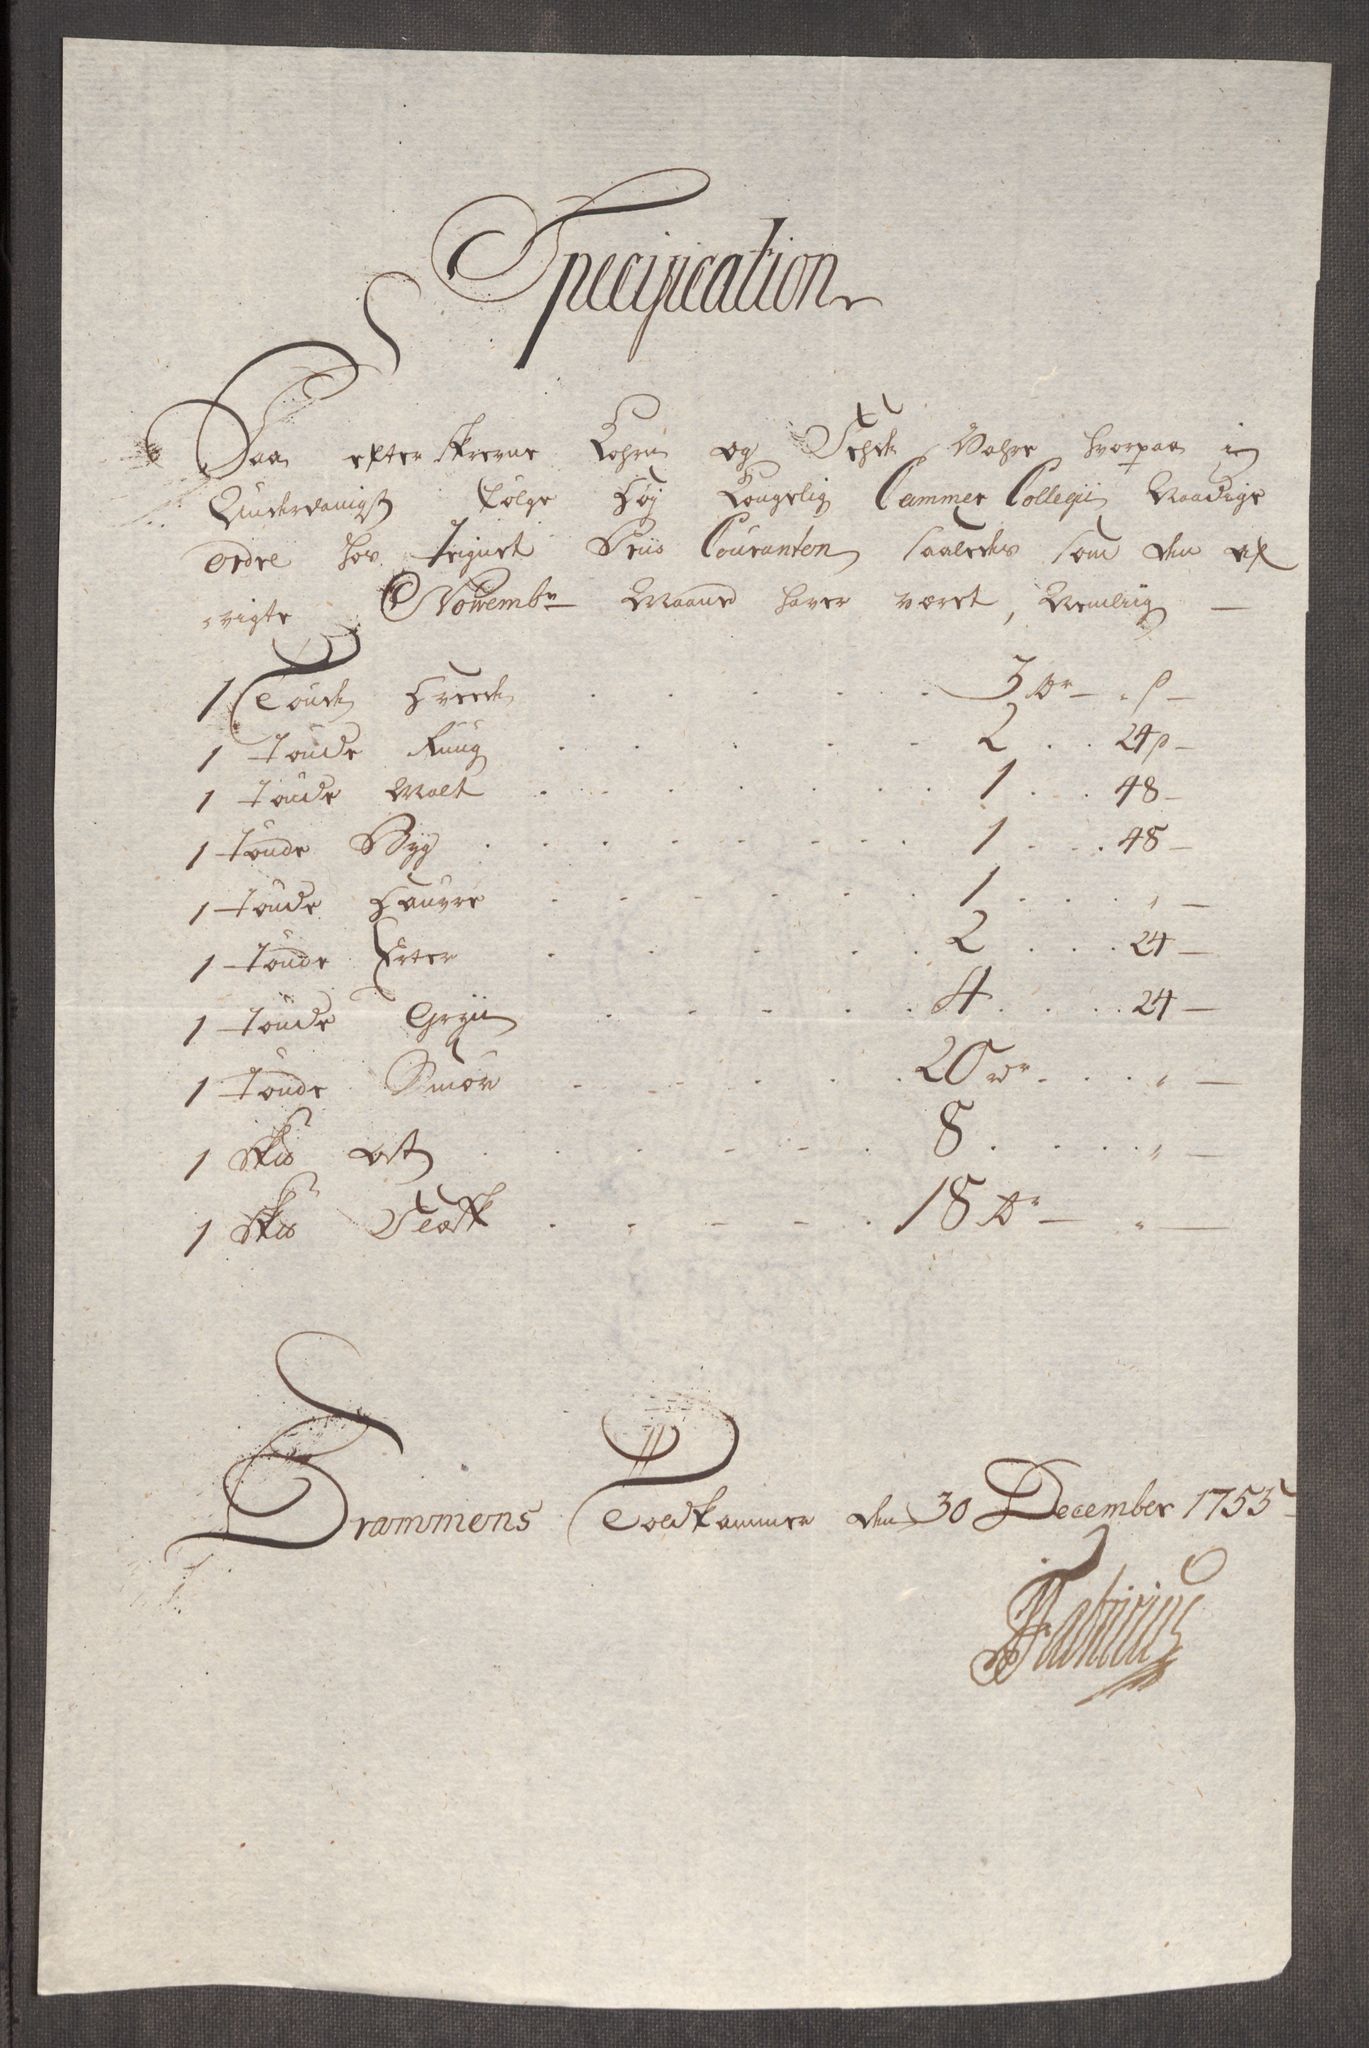 Specification
Paa efterskrevne Kohrn og Fehde Vahre hvorpaa ieg
Underdanigst følge høy Kongelig Cammer Collegii Naadige
Ordre hos teignet Priis Couranten saaledes som den af
vigte Novembr Maaned haver været, Nemlig —
1 Tønde Hvede . . . . . . 3 Rdr — „ ß —
1 Tønde Rug . . . . . 2 . . 24 ß —
1 Tønde Malt . . . . . . . 1 . . . 48 —
1 Tønde Byg . . . . . . . . 1 . . . 48 —
1 Tønde Hauvre . . . . . . 1 . . . „ —
1 Tønde Erter . . . . . 2 . . . 24 —
1 Tønde Gryn . . . . . . 4 . . . . 24 —
1 Tønde Smør . . . . . . 20 Rdr . . . „ —
1 Sk℔ Ost . . . . . . 8 . . . . „ —
1 Sk℔ Flesk . . . . . 18 Rdr — „ —
Drammens Toldkammer den 30 December 1755
Fabricius